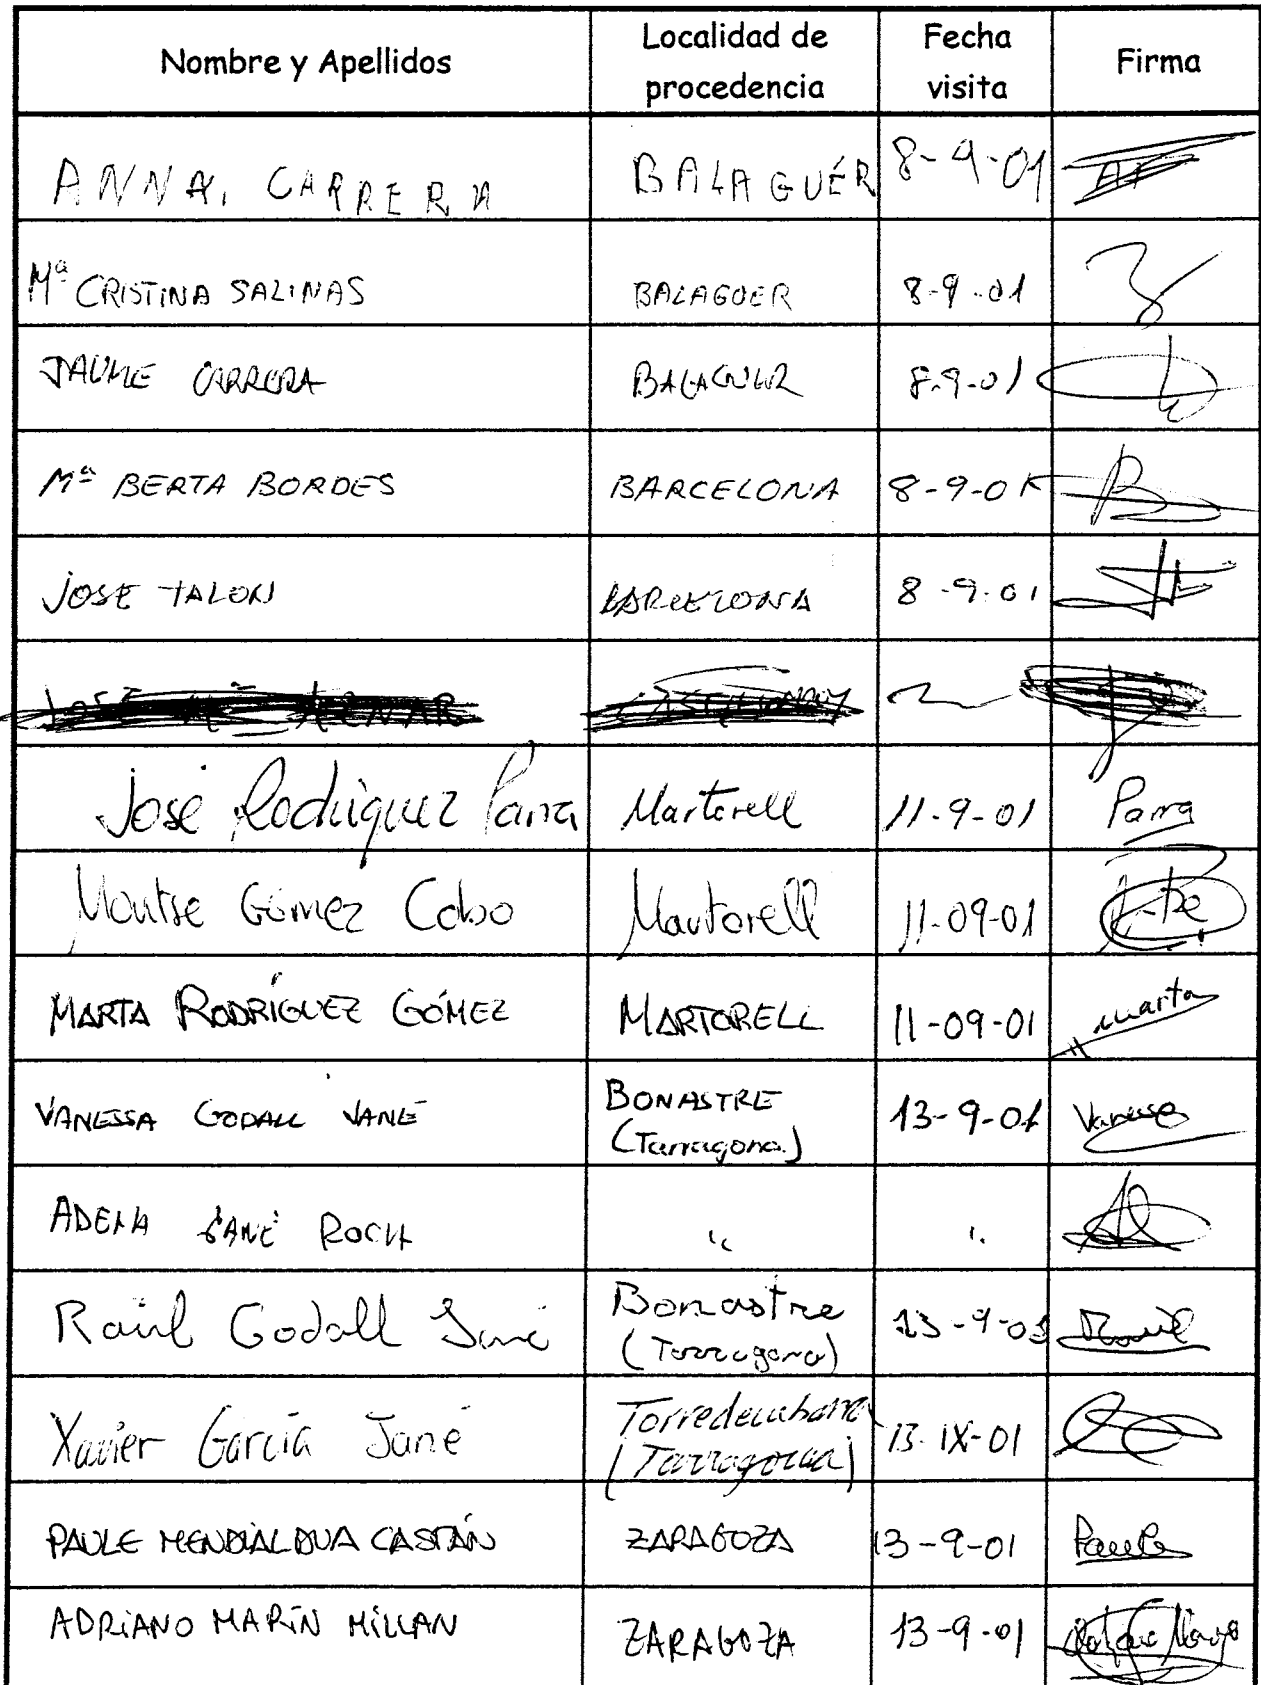 Nombre y Apellidos Localidad de procedencia Fecha visita Firma
ANNA, CARRERA BALAGUÉR 8-9-01
Mª CRISTINA SALINAS BALAGUER 8-9-01
JAUME CARRERA BALAGUER 8-9-01
Mª BERTA BORDES BARCELONA 8-9-01
JOSE TALON BARCELONA 8-9-01
José Rodriguez Parra Martorell 11-9-01 Parra
Montse Gómez Cobo Martorell 11-09-01
MARTA RODRÍGUEZ GÓMEZ MARTORELL 11-09-01 Marta
VANESSA GODALL JANÉ BONASTRE (Tarragona) 13-9-01 Vanessa
ADELA JANÉ ROCH " "
Raül Godall Jané Bonastre (Tarragona) 13-9-01 Raül
Xavier García Jané Torredembarra (Tarragona) 13-IX-01
PAULE MENDIALDUA CASTÁN ZARAGOZA 13-9-01 Paule
ADRIANO MARÍN MILLAN ZARAGOZA 13-9-01